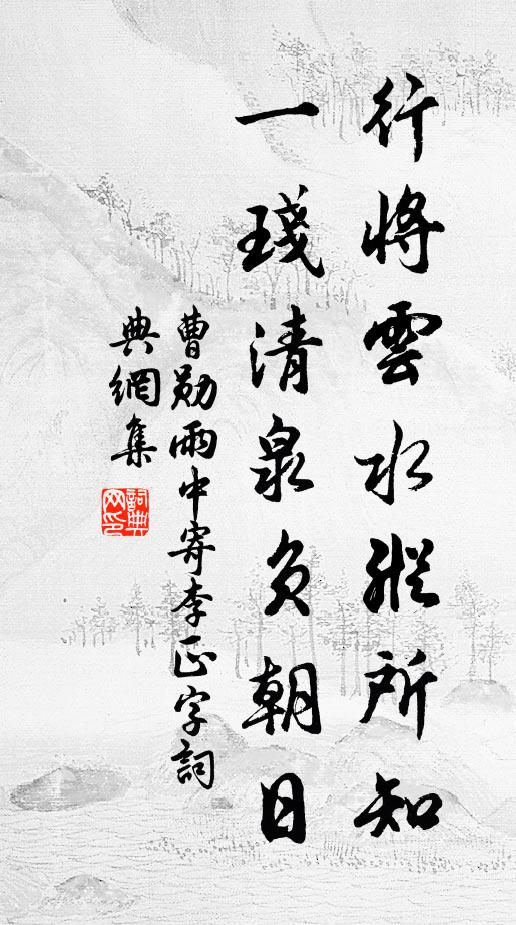 行將雲水縱所知
一琖清泉負朝日
曹勛雨中寄李正字詞
典網集
詞典
网印